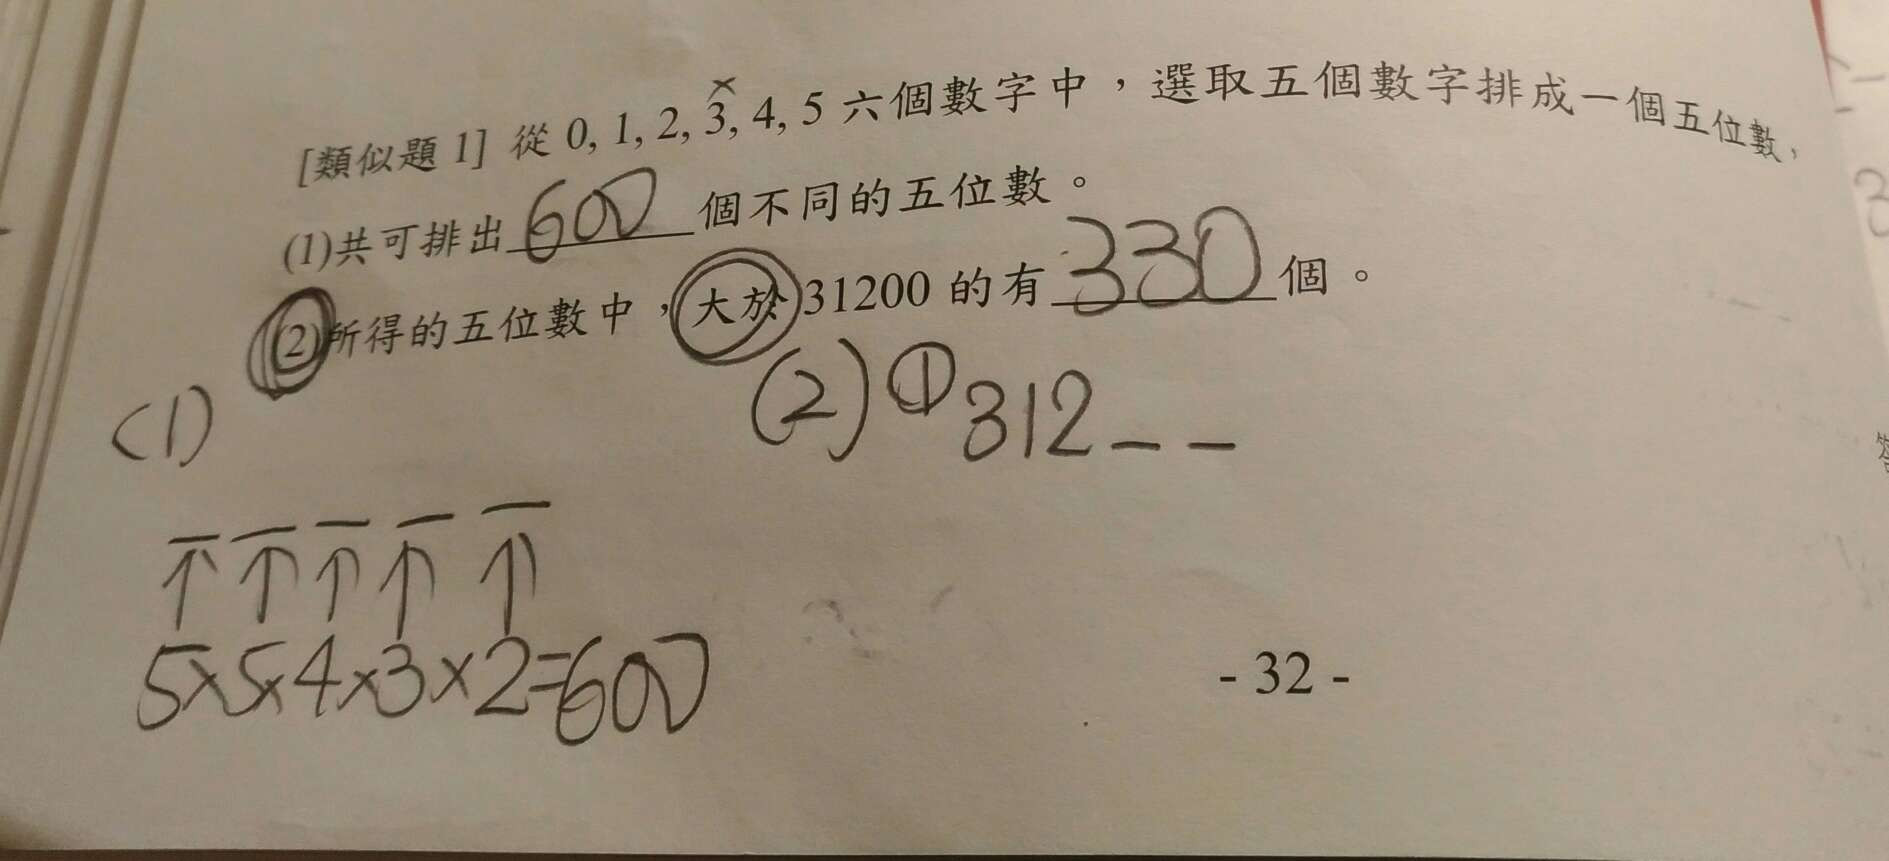 [類似題 1] 從 0, 1, 2, 3, 4, 5 六個數字中，選取五個數字排成一個五位數，
(1)共可排出 600 個不同的五位數。
(2)所得的五位數中，大於 31200 的有 330 個。
(1)
(2) ① 312 _ _
5×5×4×3×2=600
- 32 -